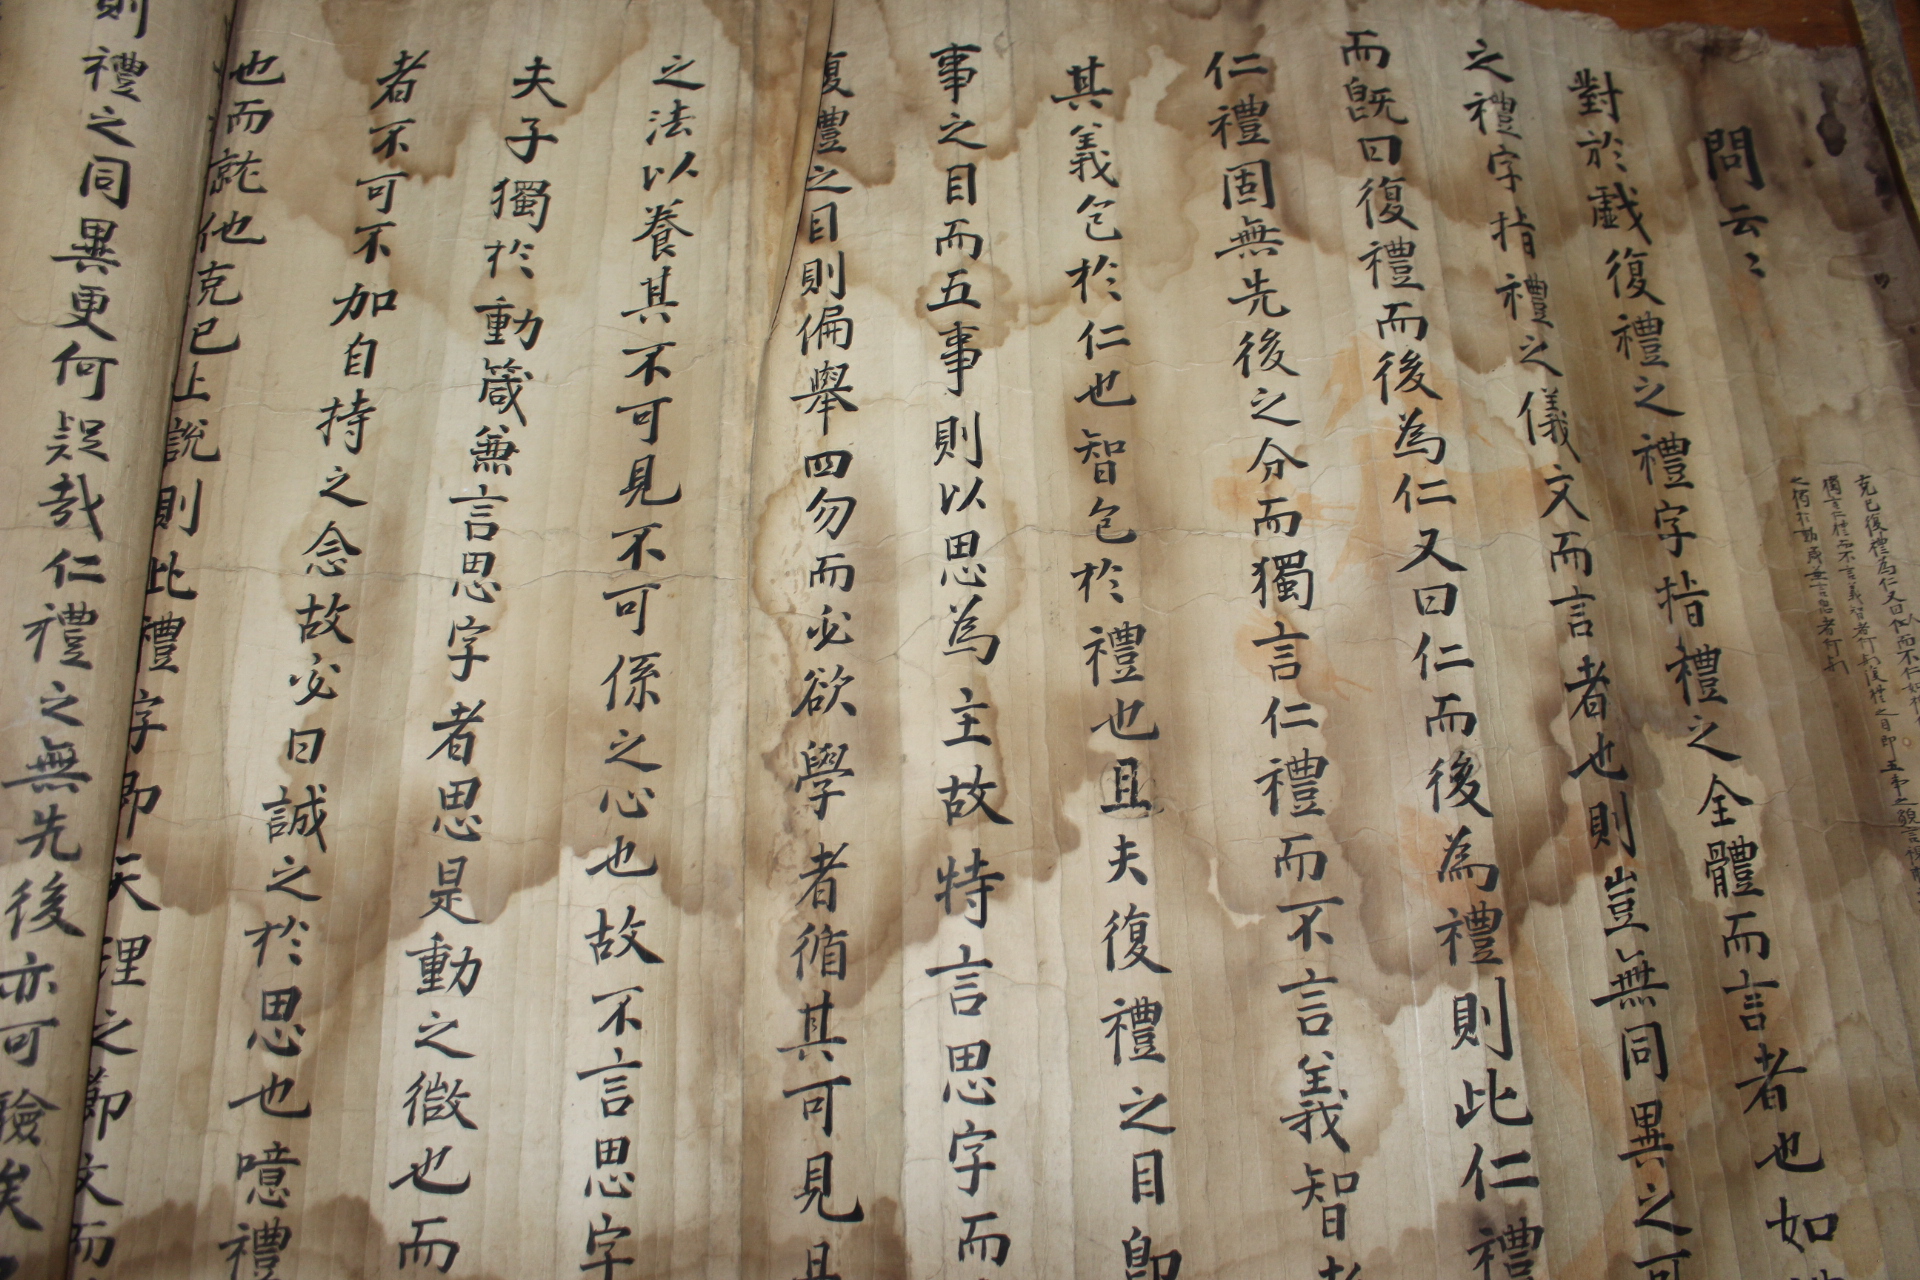 克己復禮為仁又曰人而不仁如禮
獨言仁禮而不言義智者何歟復禮之目即五事之貌言視聽
之何於動箴並言思者何歟
問云〻
對於戱復禮之禮字指禮之全體而言者也如
之禮字指禮之儀文而言者也則豈無同異之可
而旣曰復禮而後為仁又曰仁而後為禮則此仁禮
仁禮固無先後之分而獨言仁禮而不言義智者
其義包於仁也智包於禮也且夫復禮之目即
事之目而五事則以思為主故特言思字而
復禮之目則偏舉四勿而必欲學者循其可見
之法以養其不可見不可係之心也故不言思字
夫子獨於動箴兼言思字者思是動之微也而
者不可不加自持之念故必曰誠之於思也噫禮
也而就他克己上說則此禮字即天理之節文而
則禮之同異更何疑哉仁禮之無先後亦可驗矣